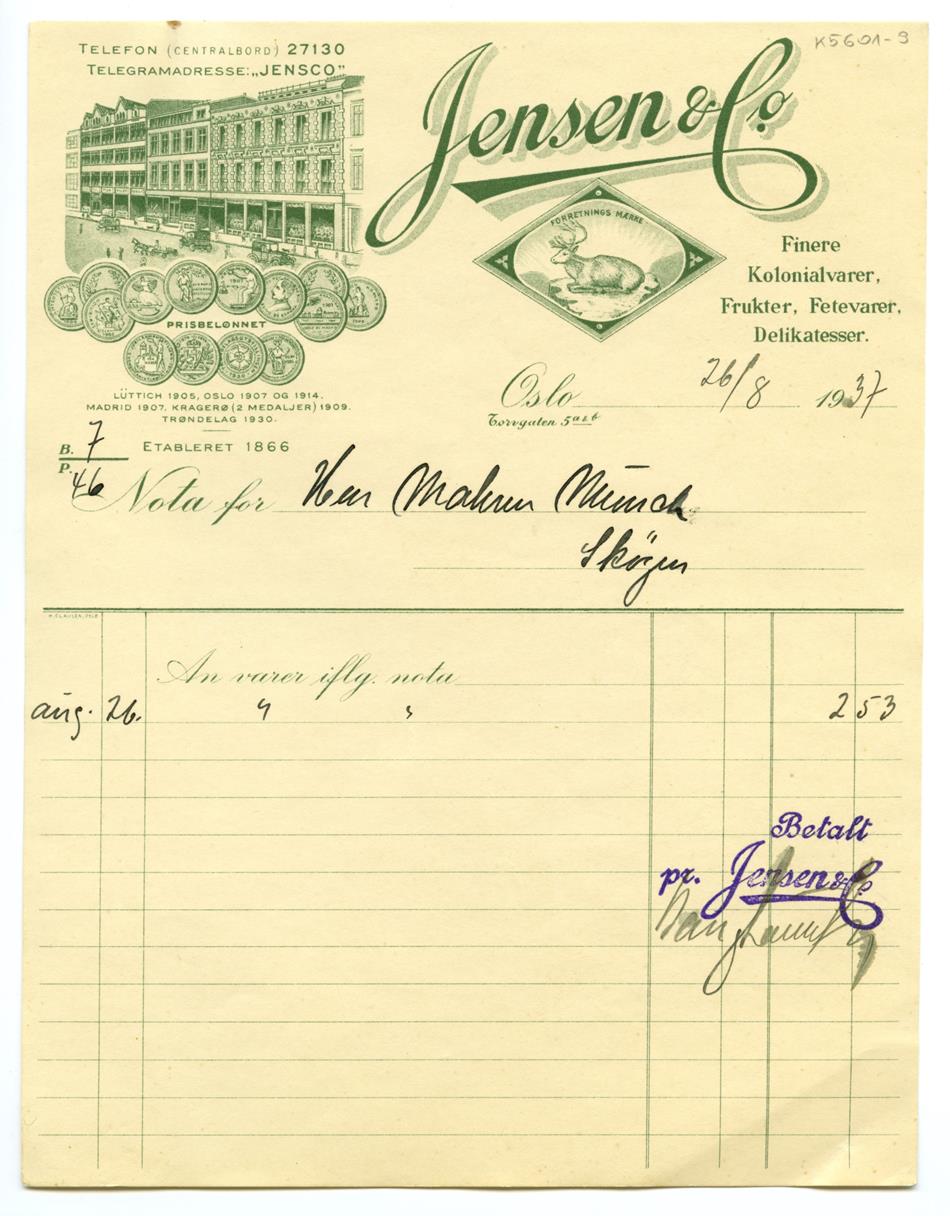 K5601-9
TELEFON (CENTRALBORD) 27130
TELEGRAMADRESSE: „JENSCO"
Jensen & Co
FORRETNINGS MÆRKE
Finere
Kolonialvarer,
Frukter, Fetevarer,
Delikatesser.
PRISBELØNNET
LÜTTICH 1905, OSLO 1907 OG 1914.
MADRID 1907. KRAGERØ (2 MEDALJER) 1909.
TRØNDELAG 1930.
ETABLERET 1866
Oslo 26/8 1937
Torvgaten 5 a & b
B. 7
P. 46
Nota for Herr Maleren Munch
Skøyen
H. CLAUSEN, OSLO
An varer iflg. nota
aug. 26. " " 2 53
Betalt
pr. Jensen & Co